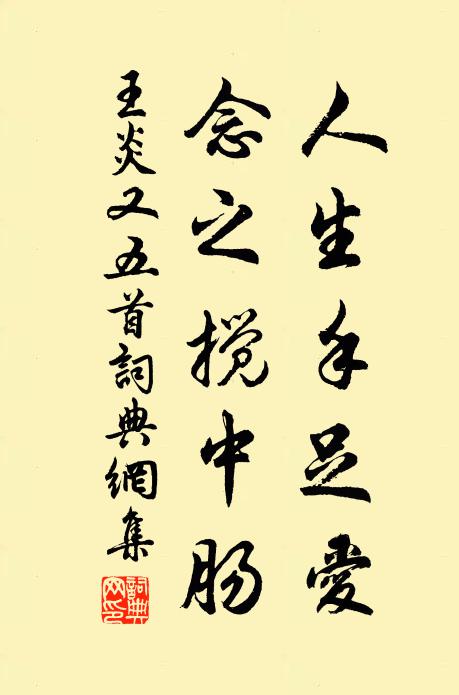 人生手足愛
念之搅中肠
王炎又五首詞典網集
詞典